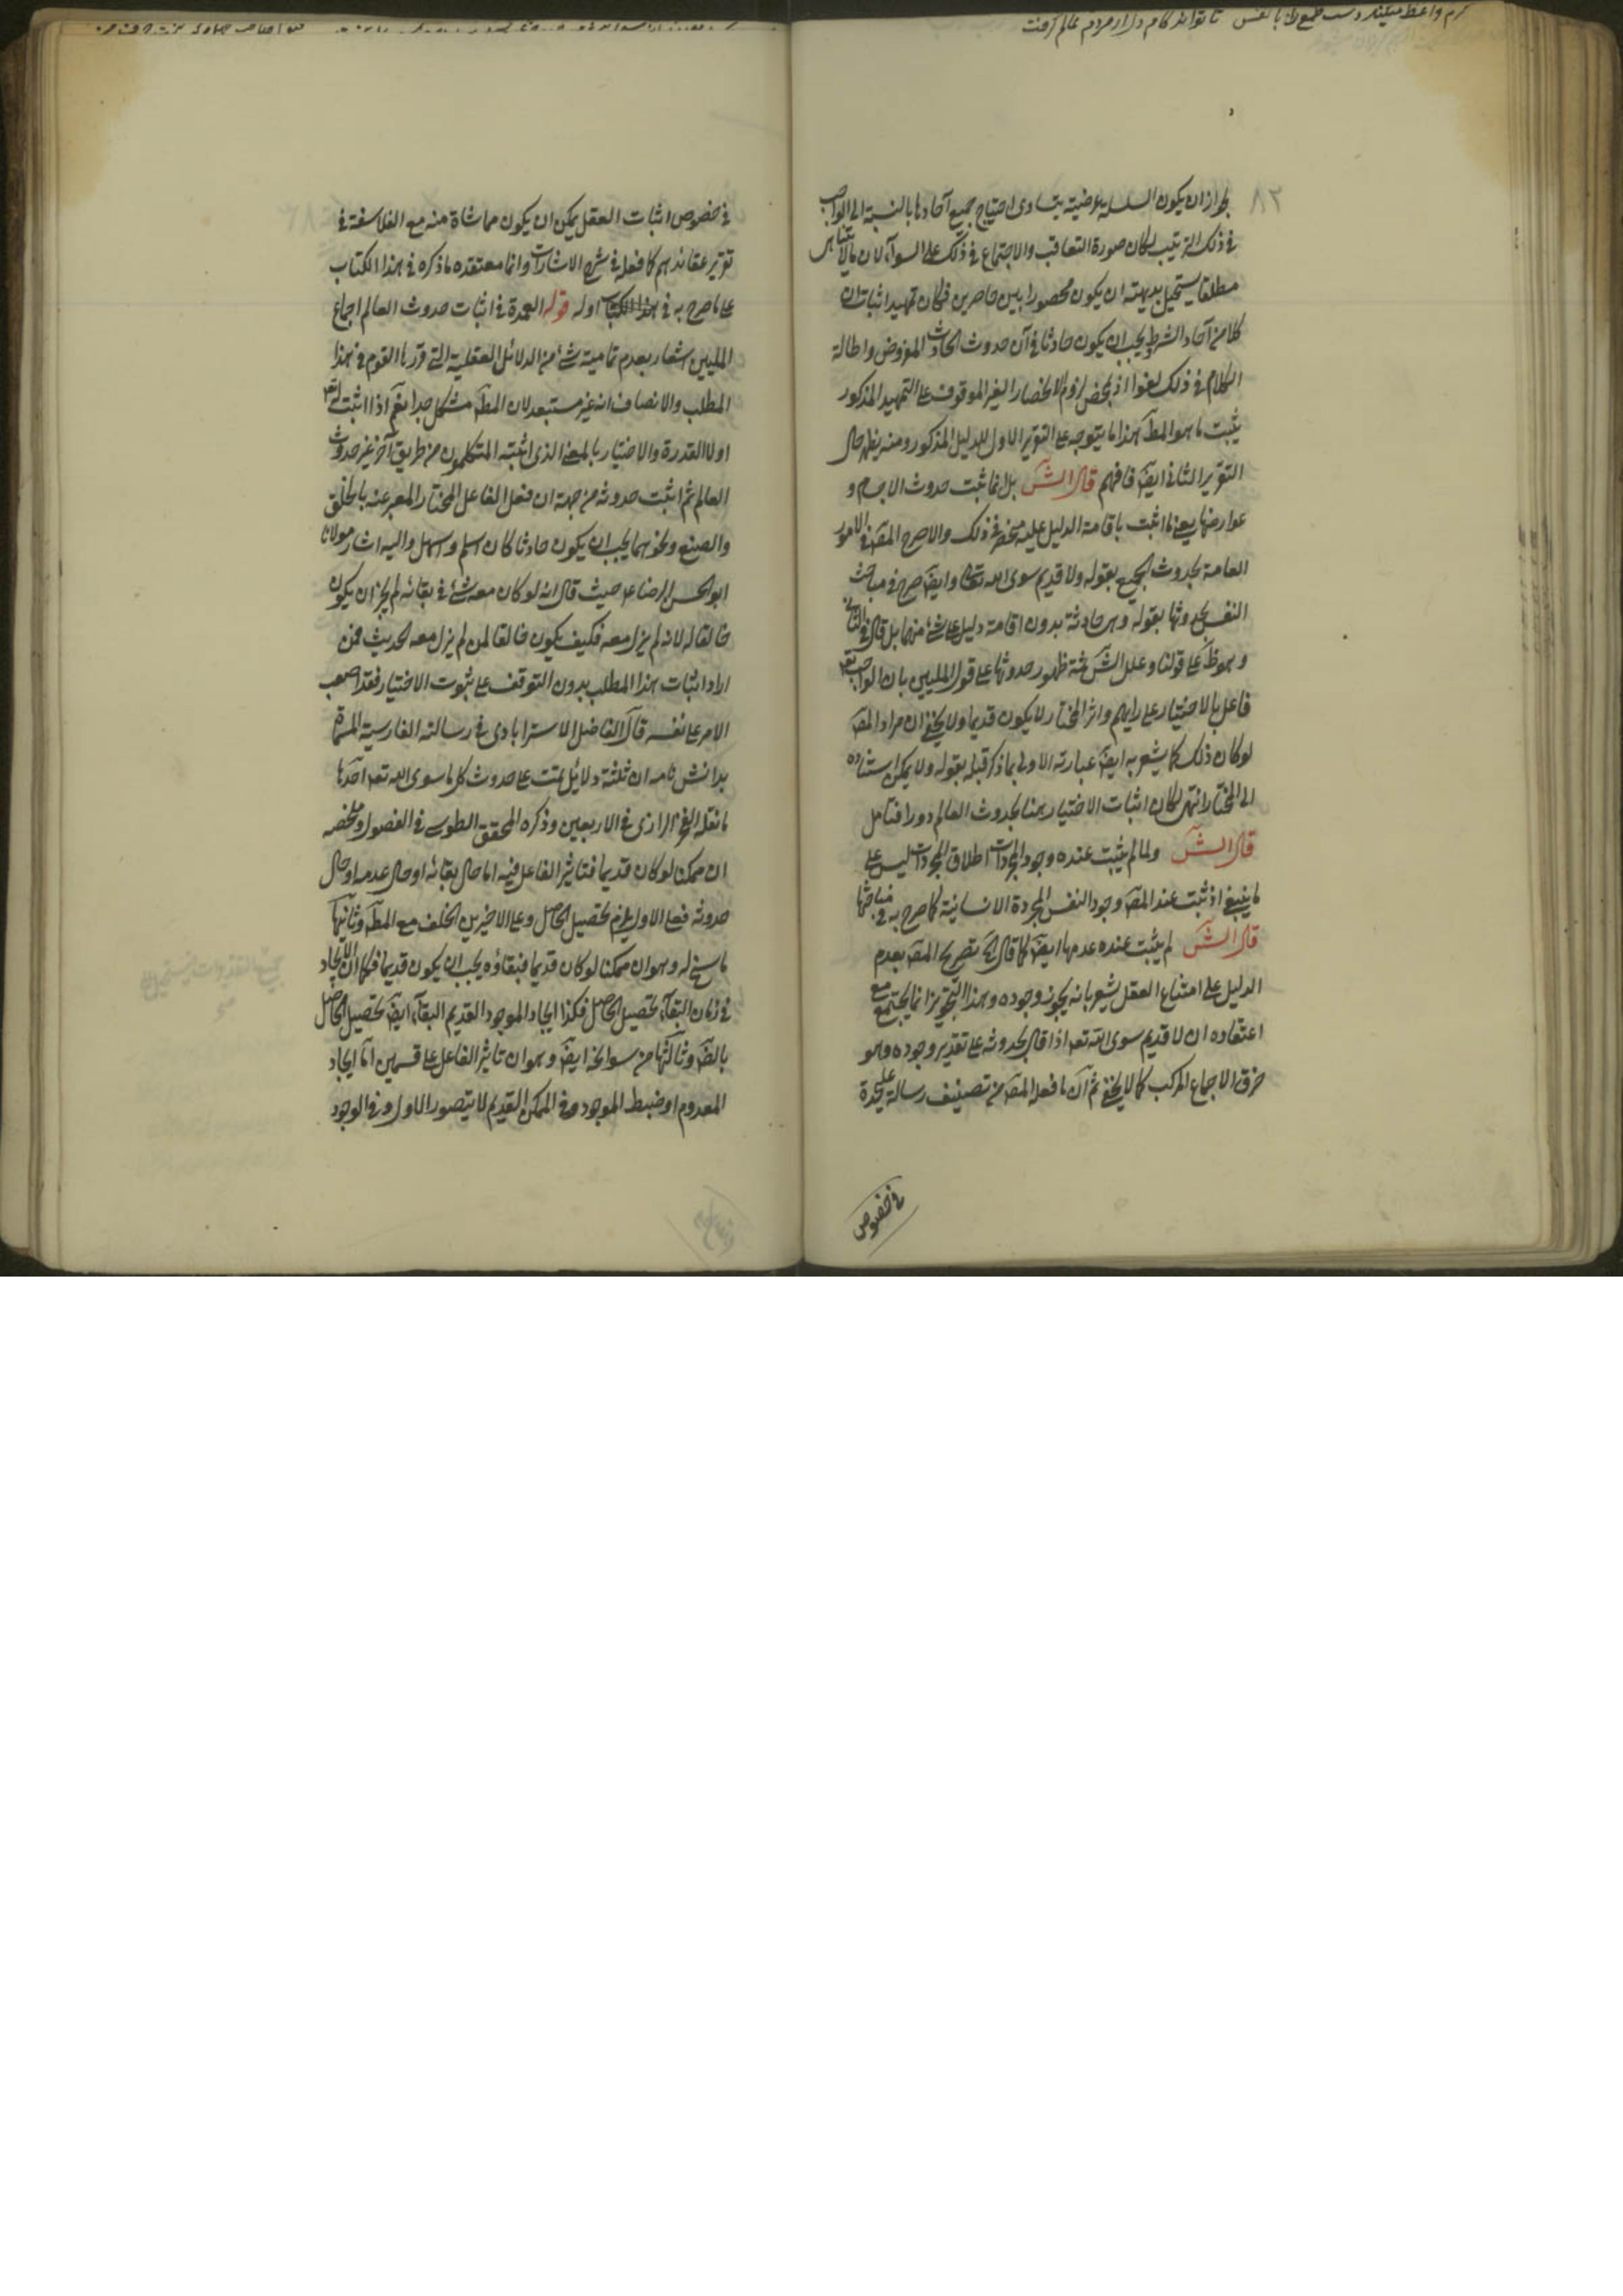 كرم واعظ ميكند دست طمع را
٨٢
لجواز ان يكون السلسلة عرضية يتساوى احتياج جميع آحادها بالنسبة الى الواجب
فى ذلك الترتيب لكان صورة التعاقب والاجتماع فى ذلك على السوآء لان مالايتناهى
مطلقا يستحيل بديهة ان يكون محصورا بين حاصرين فكان تمهيد اثبات ان
كلا من آحاد الشرط يجب ان يكون حادثا فى آن حدوث الحادث المفروض واطالة
الكلام فى ذلك لغوا اذ بمحض لزوم الانحصار الغير الموقوف على التمهيد المذكور
يثبت ما هو المطـ هذا ما يتوجه على التقرير الاول للدليل المذكور ومنه يظهر حال
التقرير الثانى ايضـ فافهم قال الشـ بل انما ثبت حدوث الاجسام و
عوارضها يعنى ما اثبت باقامة الدليل عليه منحصر فى ذلك والا صرح المصـ فى الامور
العامة بحدوث الجميع بقوله ولا قديم سوى الله تعالى وايضـ صرح فى مباحث
النفس بحدوثها بقوله وهى حادثة بدون اقامة دليل على شئ منهما بل قال فى الثانى
وهو ظـ على قولنا وعلل الشـ ثمة ظهور حدوثها على قول المليين بان الواجب تعـ
فاعل بالاختيار على رايهم واثر المختار لا يكون قديما ولا يخفى ان مراد المصـ
لو كان ذلك كما يشعر به ايضـ عبارته الاولى بما ذكر قبله بقوله ولا يمكن استناده
الى المختار انتهى لكان اثبات الاختيار هنا بحدوث العالم دورا فتامل
قال الشـ ولما لم يثبت عنده وجود المجردات اطلاق المجردات ليس على
ما ينبغى اذ ثبت عند المصـ وجود النفس المجردة الانسانية كما صرح به فى مباحثها
قال الشـ لم يثبت عنده عدمها ايضـ كما قال الخ تصريح المصـ بعدم
الدليل على امتناع العقل يشعر بانه يجوز وجوده وهذا التجويز انما يجتمع مع
اعتقاده ان لا قديم سوى الله تعـ اذا قال بحدوثه على تقدير وجوده وهو
خرق الاجماع المركب كما لا يخفى ثم ان ما فعله المصـ من تصنيف رسالة على حدة
فى خصوص
فى خصوص اثبات العقل يمكن ان يكون مماشاة منه مع الفلاسفة فى
تقرير عقائدهم كما فعله فى شرح الاشارات وانما معتقده ما ذكره فى هذا الكتاب
على ما صرح به فى هذا الكتاب اوله قوله العمدة فى اثبات حدوث العالم اجماع
المليين اشعار بعدم تمامية شئ من الدلائل العقلية التى قررها القوم فى هذا
المطلب والانصاف انه غير مستبعد لان المطـ مشكل جدا نعم اذا اثبت له تعـ
اولا القدرة والاختيار بالمعنى الذى اثبته المتكلمون من طريق آخر غير حدوث
العالم ثم اثبت حدوثه من جهة ان فعل الفاعل المختار المعبر عنه بالخلق
والصنع ونحوهما يجب ان يكون حادثا كان اسلم واسهل واليه اشار مولانا
ابو الحسن الرضا عـ حيث قال انه لو كان معه شئ فى بقائه لم يجز ان يكون
خالقا له لانه لم يزل معه فكيف يكون خالقا لمن لم يزل معه الحديث فمن
اراد اثبات هذا المطلب بدون التوقف على ثبوت الاختيار فقد اصعب
الامر على نفسه قال الفاضل الاسترابادى فى رسالته الفارسية المسماة
بدانش نامه ان ثلثة دلائل تمت على حدوث كل ما سوى الله تعـ احدها
ما نقله الفخر الرازى فى الاربعين وذكره المحقق الطوسى فى الفصول وملخصه
ان ممكنا لو كان قديما فتاثير الفاعل فيه اما حال بقائه او حال عدمه او حال
حدوثه فعلى الاول يلزم تحصيل الحاصل وعلى الاخيرين الخلف مع المطـ وثانيها
ما سنح له وهو ان ممكنا لو كان قديما فبقاؤه يجب ان يكون قديما فكما ان الايجاد
فى زمان البقآء تحصيل الحاصل فكذا ايجاد الموجود القديم البقآء ايضـ تحصيل الحاصل
بالضـ وثالثها من سوانحه ايضـ وهو ان تاثير الفاعل على قسمين اما ايجاد
المعدوم او ضبط الموجود وفى الممكن القديم لا يتصور الاول وفى الوجود